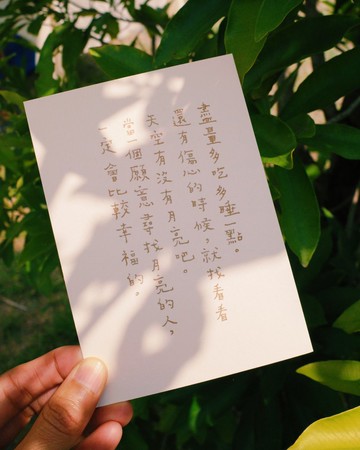 盡量多吃多睡一點。
還有傷心的時候,就找看看
天空有沒有月亮吧。
當一個願意尋找月亮的人,
一定會比較幸福的。